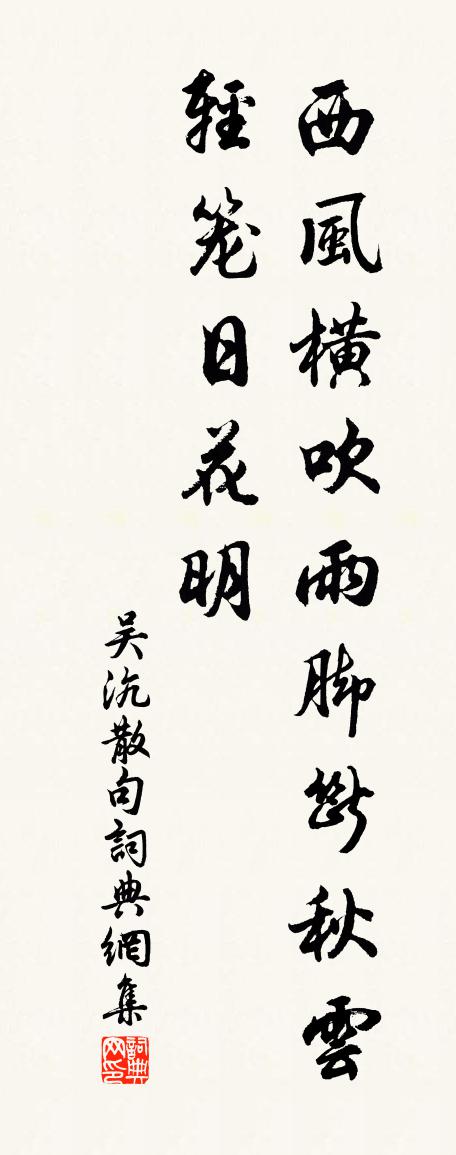 西風橫吹雨脚斷秋雲
輕籠日花明
吴沆散句詞典網集
詞典网印